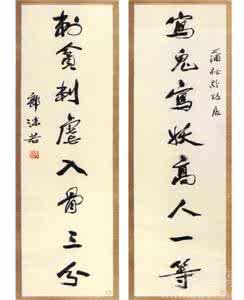 蒲松齡故居
寫鬼寫妖高人一等
刺貪刺虐入骨三分
郭沫若